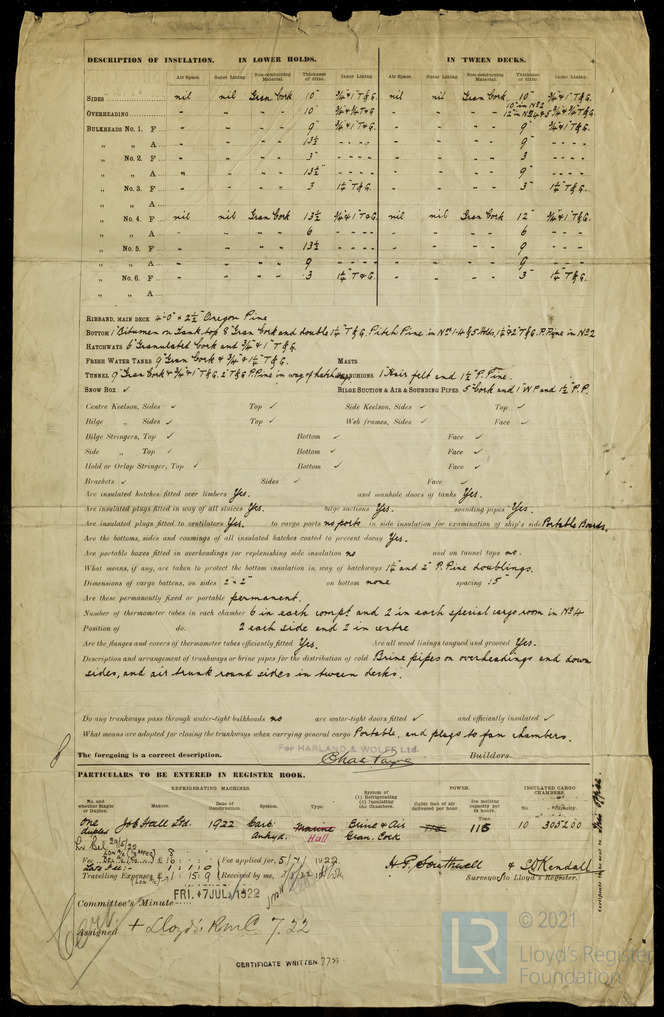 DESCRIPTION OF INSULATION. IN LOWER HOLDS. IN 'TWEEN DECKS.
Air Space. Outer Lining. Non-conducting Material. Thickness of ditto. Inner Lining. Air Space. Outer Lining. Non-conducting Material. Thickness of ditto. Inner Lining.
SIDES nil nil Gran Cork 10" ¾"&1" T&G. nil nil Gran Cork 10" ¾"&1" T&G.
OVERHEADING " " " " 10" ¾"&¾" T&G " " " " 10" in No 2 12" in No 4 & 5 ¾"&¾" T&G.
BULKHEADS No. 1. F " " " " 9" ¾"&1" T&G " " " " 9" ¾"&1" T&G.
" " A " " " " 13½ " " " " " " " " 9" " " " "
" No. 2. F " " " " 3" " " " " " " " " 3 " " " "
" " A " " " " 13½" " " " " " " " " 9" " " " "
" No. 3. F " " " " 3 1¼" T&G. " " " " 3" 1½" T&G.
" " A
" No. 4. F nil nil Gran Cork 13½ ¾"&1" T&G. nil nil Gran Cork 12" ¾"&1" T&G.
" " A " " " " 6 " " " " " " " 6 " " "
" No. 5. F " " " " 13½ " " " " " " " 9 " " "
" " A " " " " 9 " " " " " " " 9 " " "
" No. 6. F " " " " 3 1¼" T&G. " " " " 3" 1¼" T&G.
" " A
RIBBAND, MAIN DECK 4'-0" × 2½" Oregon Pine
BOTTOM 1" Bitumen on Tank top 8" Gran Cork and double 1¼" T&G. Pitch Pine in Nos 1·4&5 Hlds, 1½&2" T&G. P. Pine in No 2
HATCHWAYS 6" Granulated Cork and ¾"&1" T&G.
FRESH WATER TANKS 9" Gran Cork & ¾"&1¼" T&G. MASTS
TUNNEL 9" Gran Cork & ¾"&1" T&G. 2" T&G P. Pine in way of hatchways STANCHIONS 1" Hair felt and 1½" P. Pine.
SNOW BOX ✓ BILGE SUCTION & AIR & SOUNDING PIPES 5" Cork and 1" W P and 1½" P.P.
Centre Keelson, Sides ✓ Top ✓ Side Keelson, Sides ✓ Top ✓
Bilge " Sides ✓ Top ✓ Web frames, Sides ✓ Face ✓
Bilge Stringers, Top ✓ Bottom ✓ Face ✓
Side " Top ✓ Bottom ✓ Face ✓
Hold or Orlop Stringer, Top ✓ Bottom ✓ Face ✓
Brackets ✓ Sides ✓ Face ✓
Are insulated hatches fitted over limbers Yes. and manhole doors of tanks Yes.
Are insulated plugs fitted in way of all sluices Yes. bilge suctions Yes. sounding pipes Yes.
Are insulated plugs fitted to ventilators Yes. to cargo ports no ports in side insulation for examination of ship's side Portable Boards.
Are the bottoms, sides and coamings of all insulated hatches coated to prevent decay Yes.
Are portable boxes fitted in overheadings for replenishing side insulation no and on tunnel tops no.
What means, if any, are taken to protect the bottom insulation in way of hatchways 1½" and 2" P. Pine doublings.
Dimensions of cargo battens, on sides 2" × 2" on bottom none spacing 15"
Are these permanently fixed or portable permanent.
Number of thermometer tubes in each chamber 6 in each compt and 2 in each special cargo room in No 4
Position of do. 2 each side and 2 in centre
Are the flanges and covers of thermometer tubes efficiently fitted Yes. Are all wood linings tongued and grooved Yes.
Description and arrangement of trunkways or brine pipes for the distribution of cold Brine pipes on overheadings and down
sides, and air trunk round sides in tween decks.
Do any trunkways pass through water-tight bulkheads no are water-tight doors fitted ✓ and efficiently insulated ✓
What means are adopted for closing the trunkways when carrying general cargo Portable, and plugs to fan chambers.
For HARLAND & WOLFF Ltd.
The foregoing is a correct description. Chas Payne Builders.
PARTICULARS TO BE ENTERED IN REGISTER BOOK.
REFRIGERATING MACHINES. POWER. INSULATED CARGO CHAMBERS.
No. and whether Single or Duplex. Makers. Date of Construction. System. Type. System of (1) Refrigerating (1) Insulating the Chambers. Cubic feet of air delivered per hour. Ice melting capacity per 24 hours. Tons No. Capacity.
One duplex J & E Hall Ltd. 1922. Carb. Anhyd. Marine Hall Brine & Air Gran. Cork 115 10 305200
Fee £16 : : Fee applied for, 5/7/1922
Late Fee 1 : 1 : 0
Travelling Expenses £1 : 15 : 9 Received by me,
H. P. Southwell & Kendall
Surveyor to Lloyd's Register.
Committee's Minute FRI. 7 JUL 1922
Assigned + Lloyd's RMC 7.22
Cert
CERTIFICATE WRITTEN
Certificate to be sent to This Office.
© 2021
LR
Lloyd's Register
Foundation